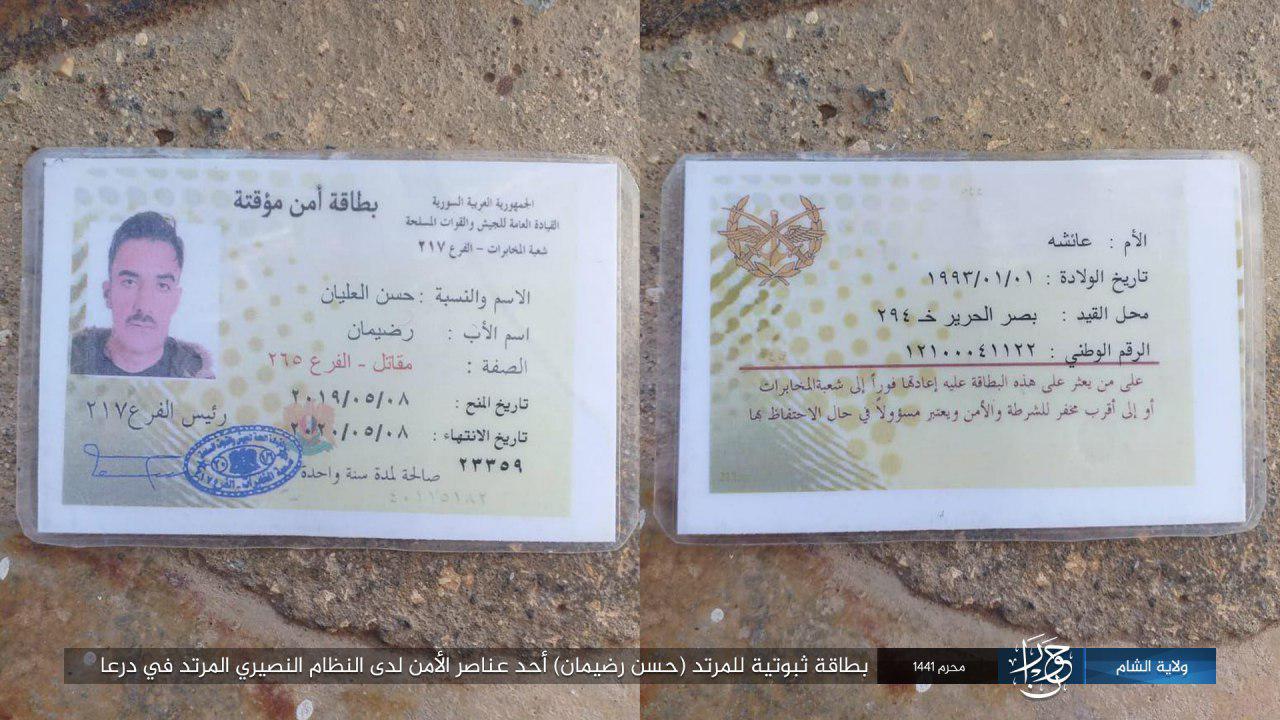 الجمهورية العربية السورية
القيادة العامة للجيش والقوات المسلحة
شعبة المخابرات - الفرع ٢١٧
بطاقة أمن مؤقتة
الاسم والنسبة : حسن العليان
اسم الأب : رضيمان
الصفة : مقاتل - الفرع ٢٦٥
تاريخ المنح : ٢٠١٩/٠٥/٠٨
تاريخ الانتهاء : ٢٠٢٠/٠٥/٠٨
٢٣٣٥٩
صالحة لمدة سنة واحدة
رئيس الفرع ٢١٧
الأم : عائشه
تاريخ الولادة : ١٩٩٣/٠١/٠١
محل القيد : بصر الحرير خـ ٢٩٤
الرقم الوطني : ١٢١٠٠٠٤١١٢٢
على من يعثر على هذه البطاقة عليه إعادتها فوراً إلى شعبة المخابرات
أو إلى أقرب مخفر للشرطة والأمن ويعتبر مسؤولاً في حال الاحتفاظ بها
ولاية الشام
محرم 1441
بطاقة ثبوتية للمرتد (حسن رضيمان) أحد عناصر الأمن لدى النظام النصيري المرتد في درعا